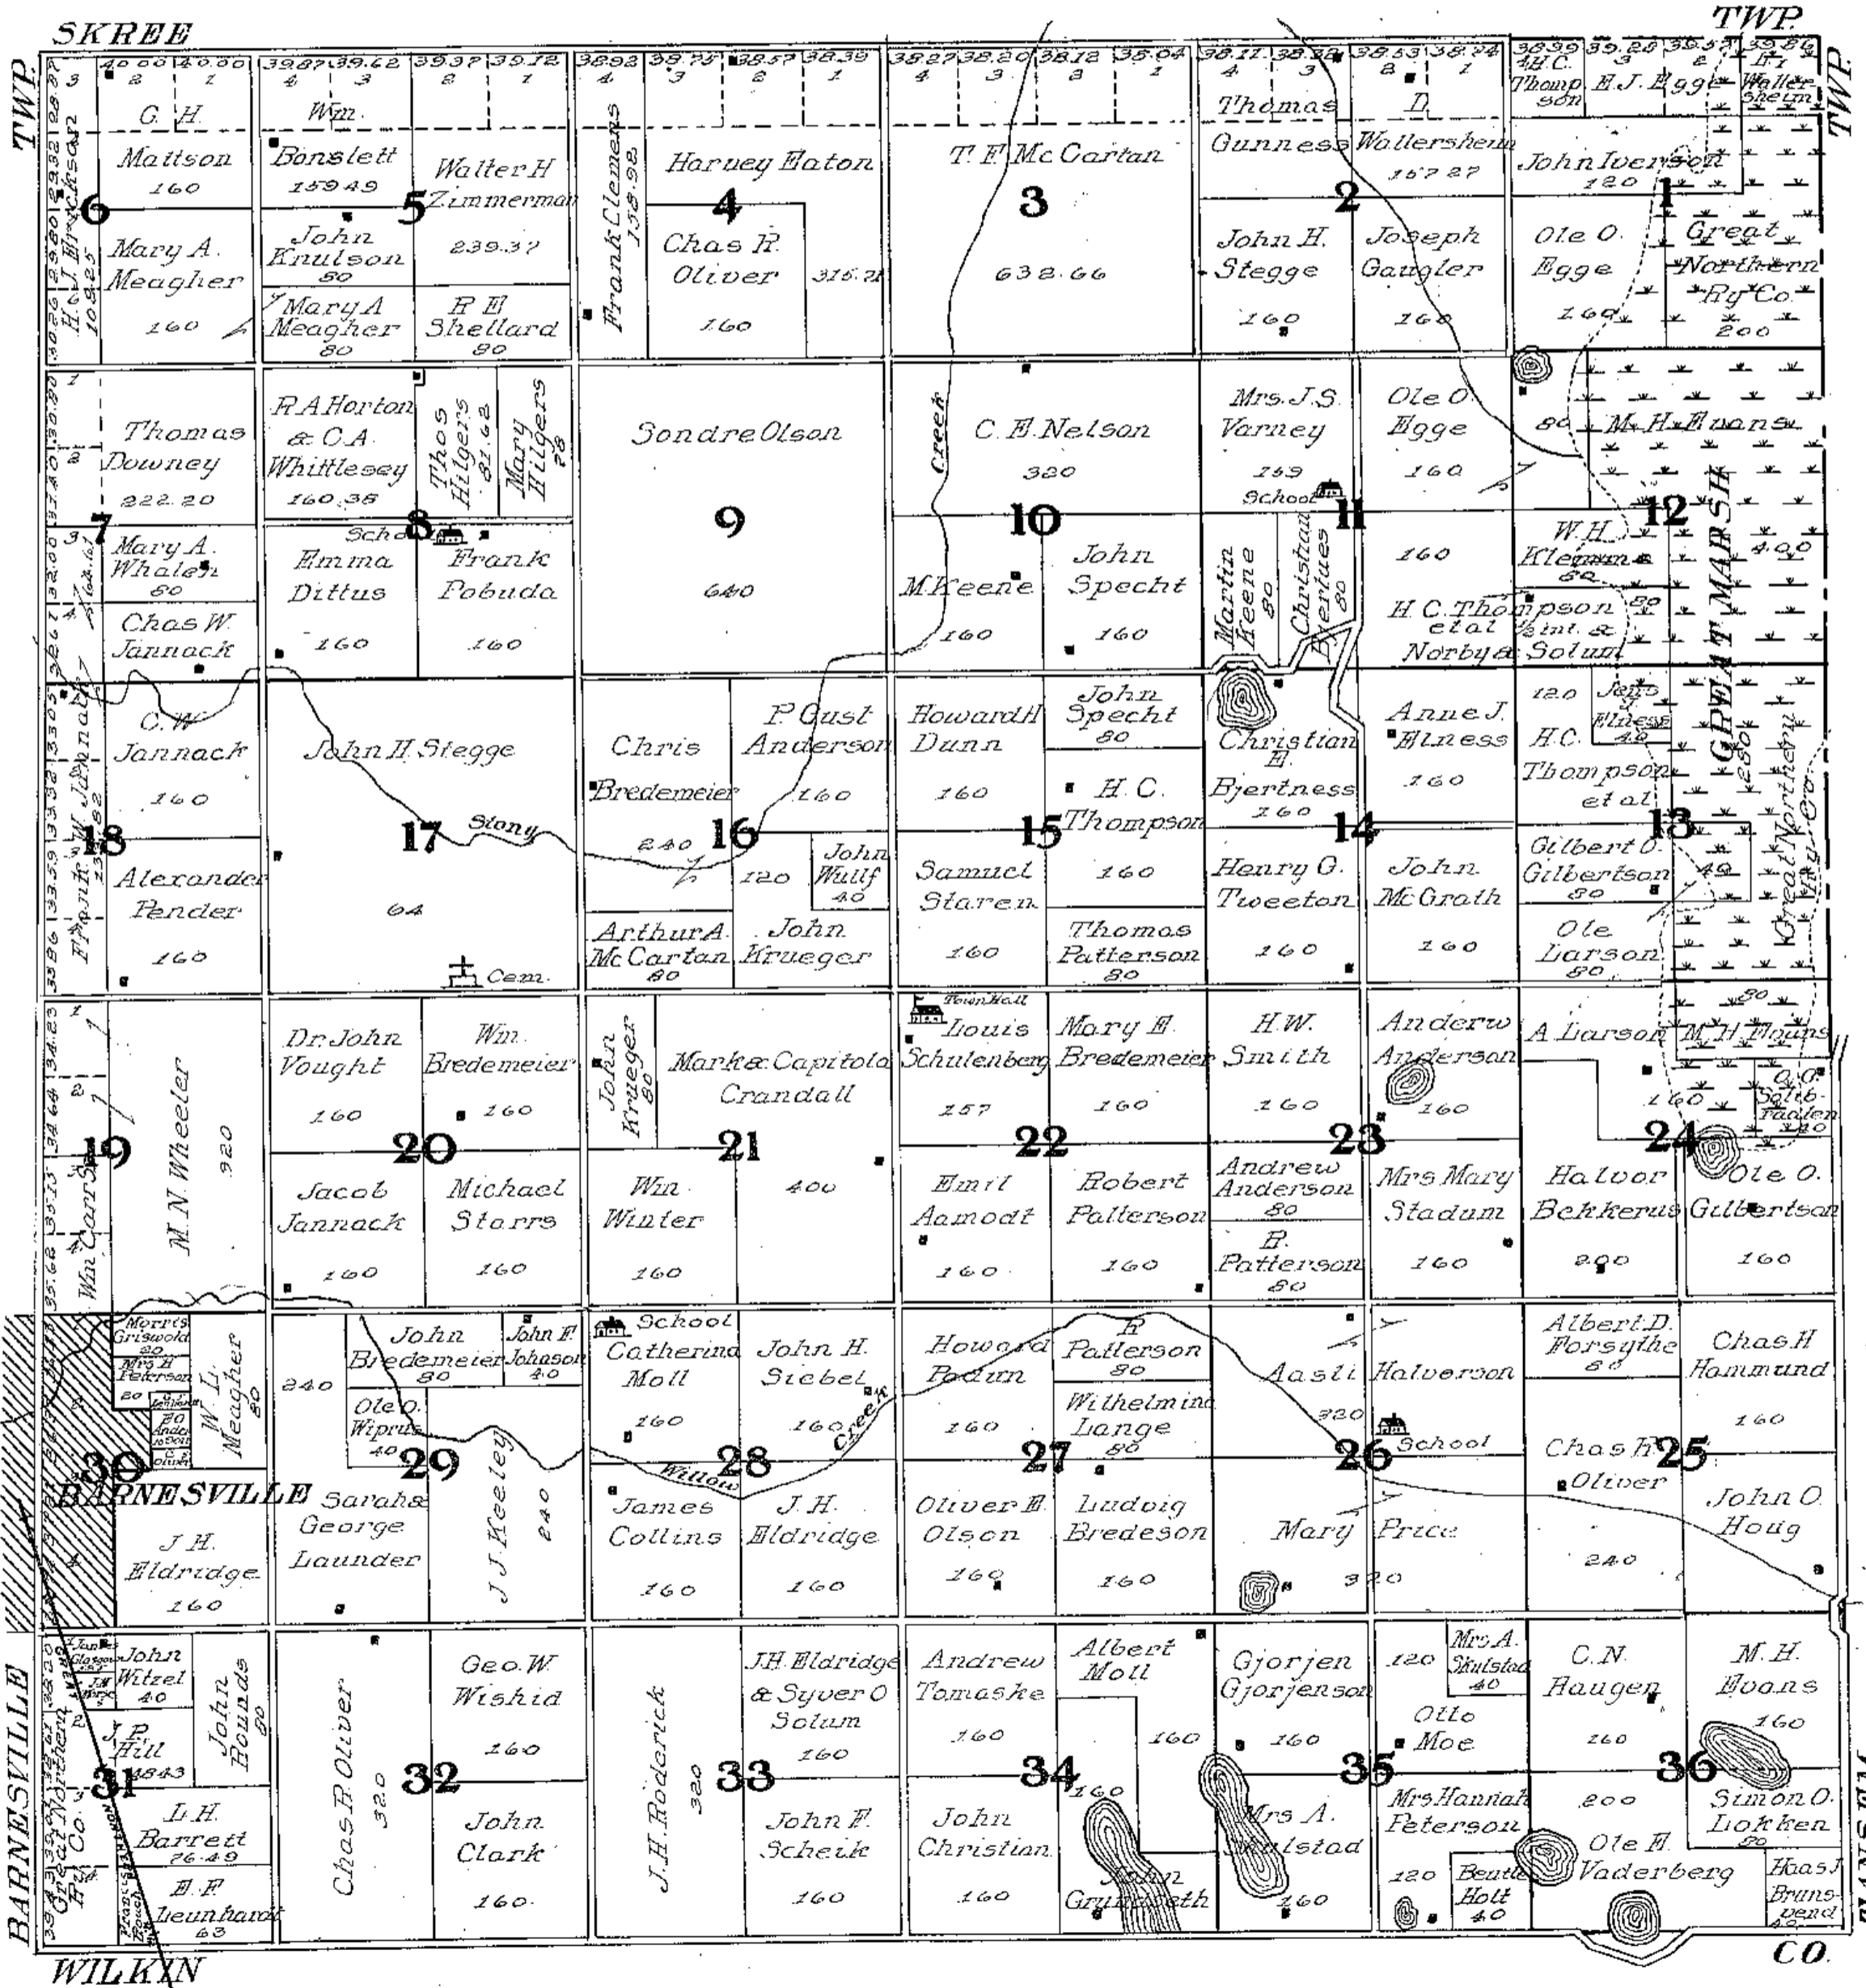 SKREE
TWP.
TWP.
TWP.
40.00 40.00 39.87 39.62 39.37 39.12 38.92 38.75 38.57 38.39 38.27 38.20 38.12 38.04 38.11 38.32 38.53 38.74 38.99 39.28 39.57 39.86
3 2 1 4 3 2 1 4 3 2 1 4 3 2 1 4 3 2 1
G. H.
Mattson
160
6
Mary A.
Meagher
160
108.25
Wm.
Bonslett
159 49
Walter H
Zimmerman
239.37
5
John
Knulson
80
Mary A
Meagher
80
R E
Shellard
80
Frank Clemens
158.92
Harvey Eaton
4
Chas R.
Oliver
160
315.21
T. F. Mc Cartan
3
638.66
Thomas
Gunness
D.
Wallersheim
157 27
2
John H.
Stegge
160
Joseph
Gaugler
160
H.C.
Thomp
son
E. J. Egge
Waller-
sheim
John Iverson
120
1
Ole O.
Egge
160
Great
Northern
Ry Co.
200
Thomas
Downey
222.20
7
Mary A.
Whalen
80
Chas W.
Jannack
R A Horton
& C.A.
Whittlesey
160.38
Thos
Hilgers
81.62
Mary
Hilgers
78
8
Scho
Emma
Dittus
160
Frank
Pobuda
160
Sondre Olson
9
640
Creek
C. E. Nelson
320
10
M Keene
160
John
Specht
160
Mrs. J. S.
Varney
159
School
11
Ole O.
Egge
160
Martin
Keene
80
Christian
Bjertues
80
160
H. C. Thompson
et al ½ int. &
Norby & Solum
80
80
M. H. Evans
12
400
W. H.
Klemme
80
GREAT MARSH
Frank W. Jannack
C. W
Jannack
160
18
Alexander
Pender
160
John H. Stegge
17
Stony
64
Cem.
Chris
Bredemeier
240
P. Gust
Anderson
160
16
120
John
Wullf
40
Arthur A.
Mc Cartan
80
John
Krueger
Howard H
Dunn
160
John
Specht
80
H. C.
Thompson
160
15
Samuel
Staren
160
Thomas
Patterson
80
Christian
E.
Bjertness
160
Anne J.
Elness
160
14
Henry G.
Tweeton
160
John
McGrath
160
120
Jens
J.
Elness
40
H.C.
Thompson
et al
280
13
Gilbert O.
Gilbertson
80
40
Ole
Larson
80
Great Northern
Ry Co.
19
M. N. Wheeler
320
Dr. John
Vought
160
Wm.
Bredemeier
160
20
Jacob
Jannack
160
Michael
Starrs
160
John
Krueger
80
Mark & Capitola
Crandall
21
400
Win.
Winter
160
Town Hall
Louis
Schulenberg
157
Mary E.
Bredemeier
160
22
Emil
Aamodt
160
Robert
Patterson
160
H. W.
Smith
160
Anderw
Anderson
160
23
Andrew
Anderson
80
R.
Patterson
80
Mrs Mary
Stadum
160
A Larson
160
80
M. H. Evans
O. O.
40
24
Halvor
Bekkerus
200
Ole O.
Gilbertson
160
Morris
Griswold
20
Mrs H
Peterson
20
W. L.
Meagher
80
30
BARNESVILLE
J. H.
Eldridge
160
240
John
Bredemeier
80
John F
Johnson
40
Ole O.
Wiprus
40
29
Sarah &
George
Launder
J J Keeley
240
School
Catherina
Moll
160
John H.
Siebel
160
Creek
28
Willow
James
Collins
160
J. H.
Eldridge
160
Howard
Podum
160
R
Patterson
80
Wilhelmina
Lange
80
27
Oliver E
Olson
160
Ludvig
Bredeson
160
Aasli Halverson
320
School
26
Mary Price
320
Albert D.
Forsythe
80
Chas. H
Hammund
160
25
Chas R
Oliver
240
John O.
Houg
John
Witzel
40
John
Rounds
80
J. P.
Hill
4843
31
Great Northern
Ry Co.
L. H.
Barrett
76.49
E. F
Leunhardt
63
Chas. R. Oliver
320
Geo. W.
Wishid
160
32
John
Clark
160
J. H. Roderick
320
J.H. Eldridge
& Syver O
Solum
160
33
John F.
Scheik
160
Andrew
Tomaske
160
Albert
Moll
160
34
160
John
Christian
160
John
Grundseth
Gjorjen
Gjorjenson
160
120
Mrs. A.
Skulstad
40
Otto
Moe
35
Mrs. A.
Skulstad
160
Mrs Hannah
Peterson
120
Holt
40
C. N.
Haugen
160
M. H.
Evans
160
36
200
Simon O.
Lokken
80
Ole E.
Vaderberg
Haas J
Bruns-
vend
BARNESVILLE
WILKIN
CO.